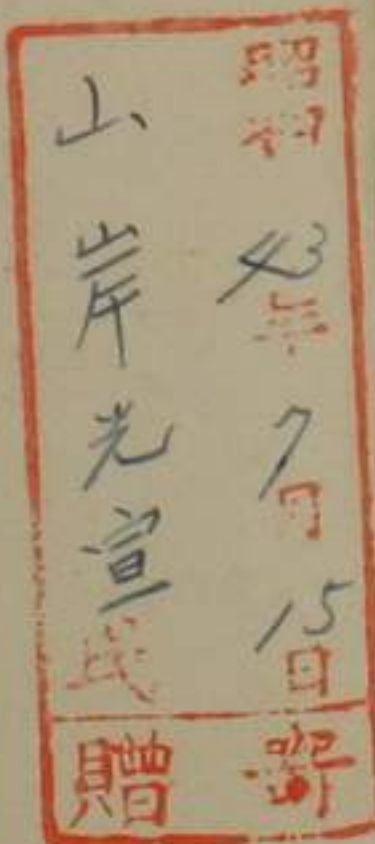 昭和43年7月15日
山岸光宣氏
寄贈